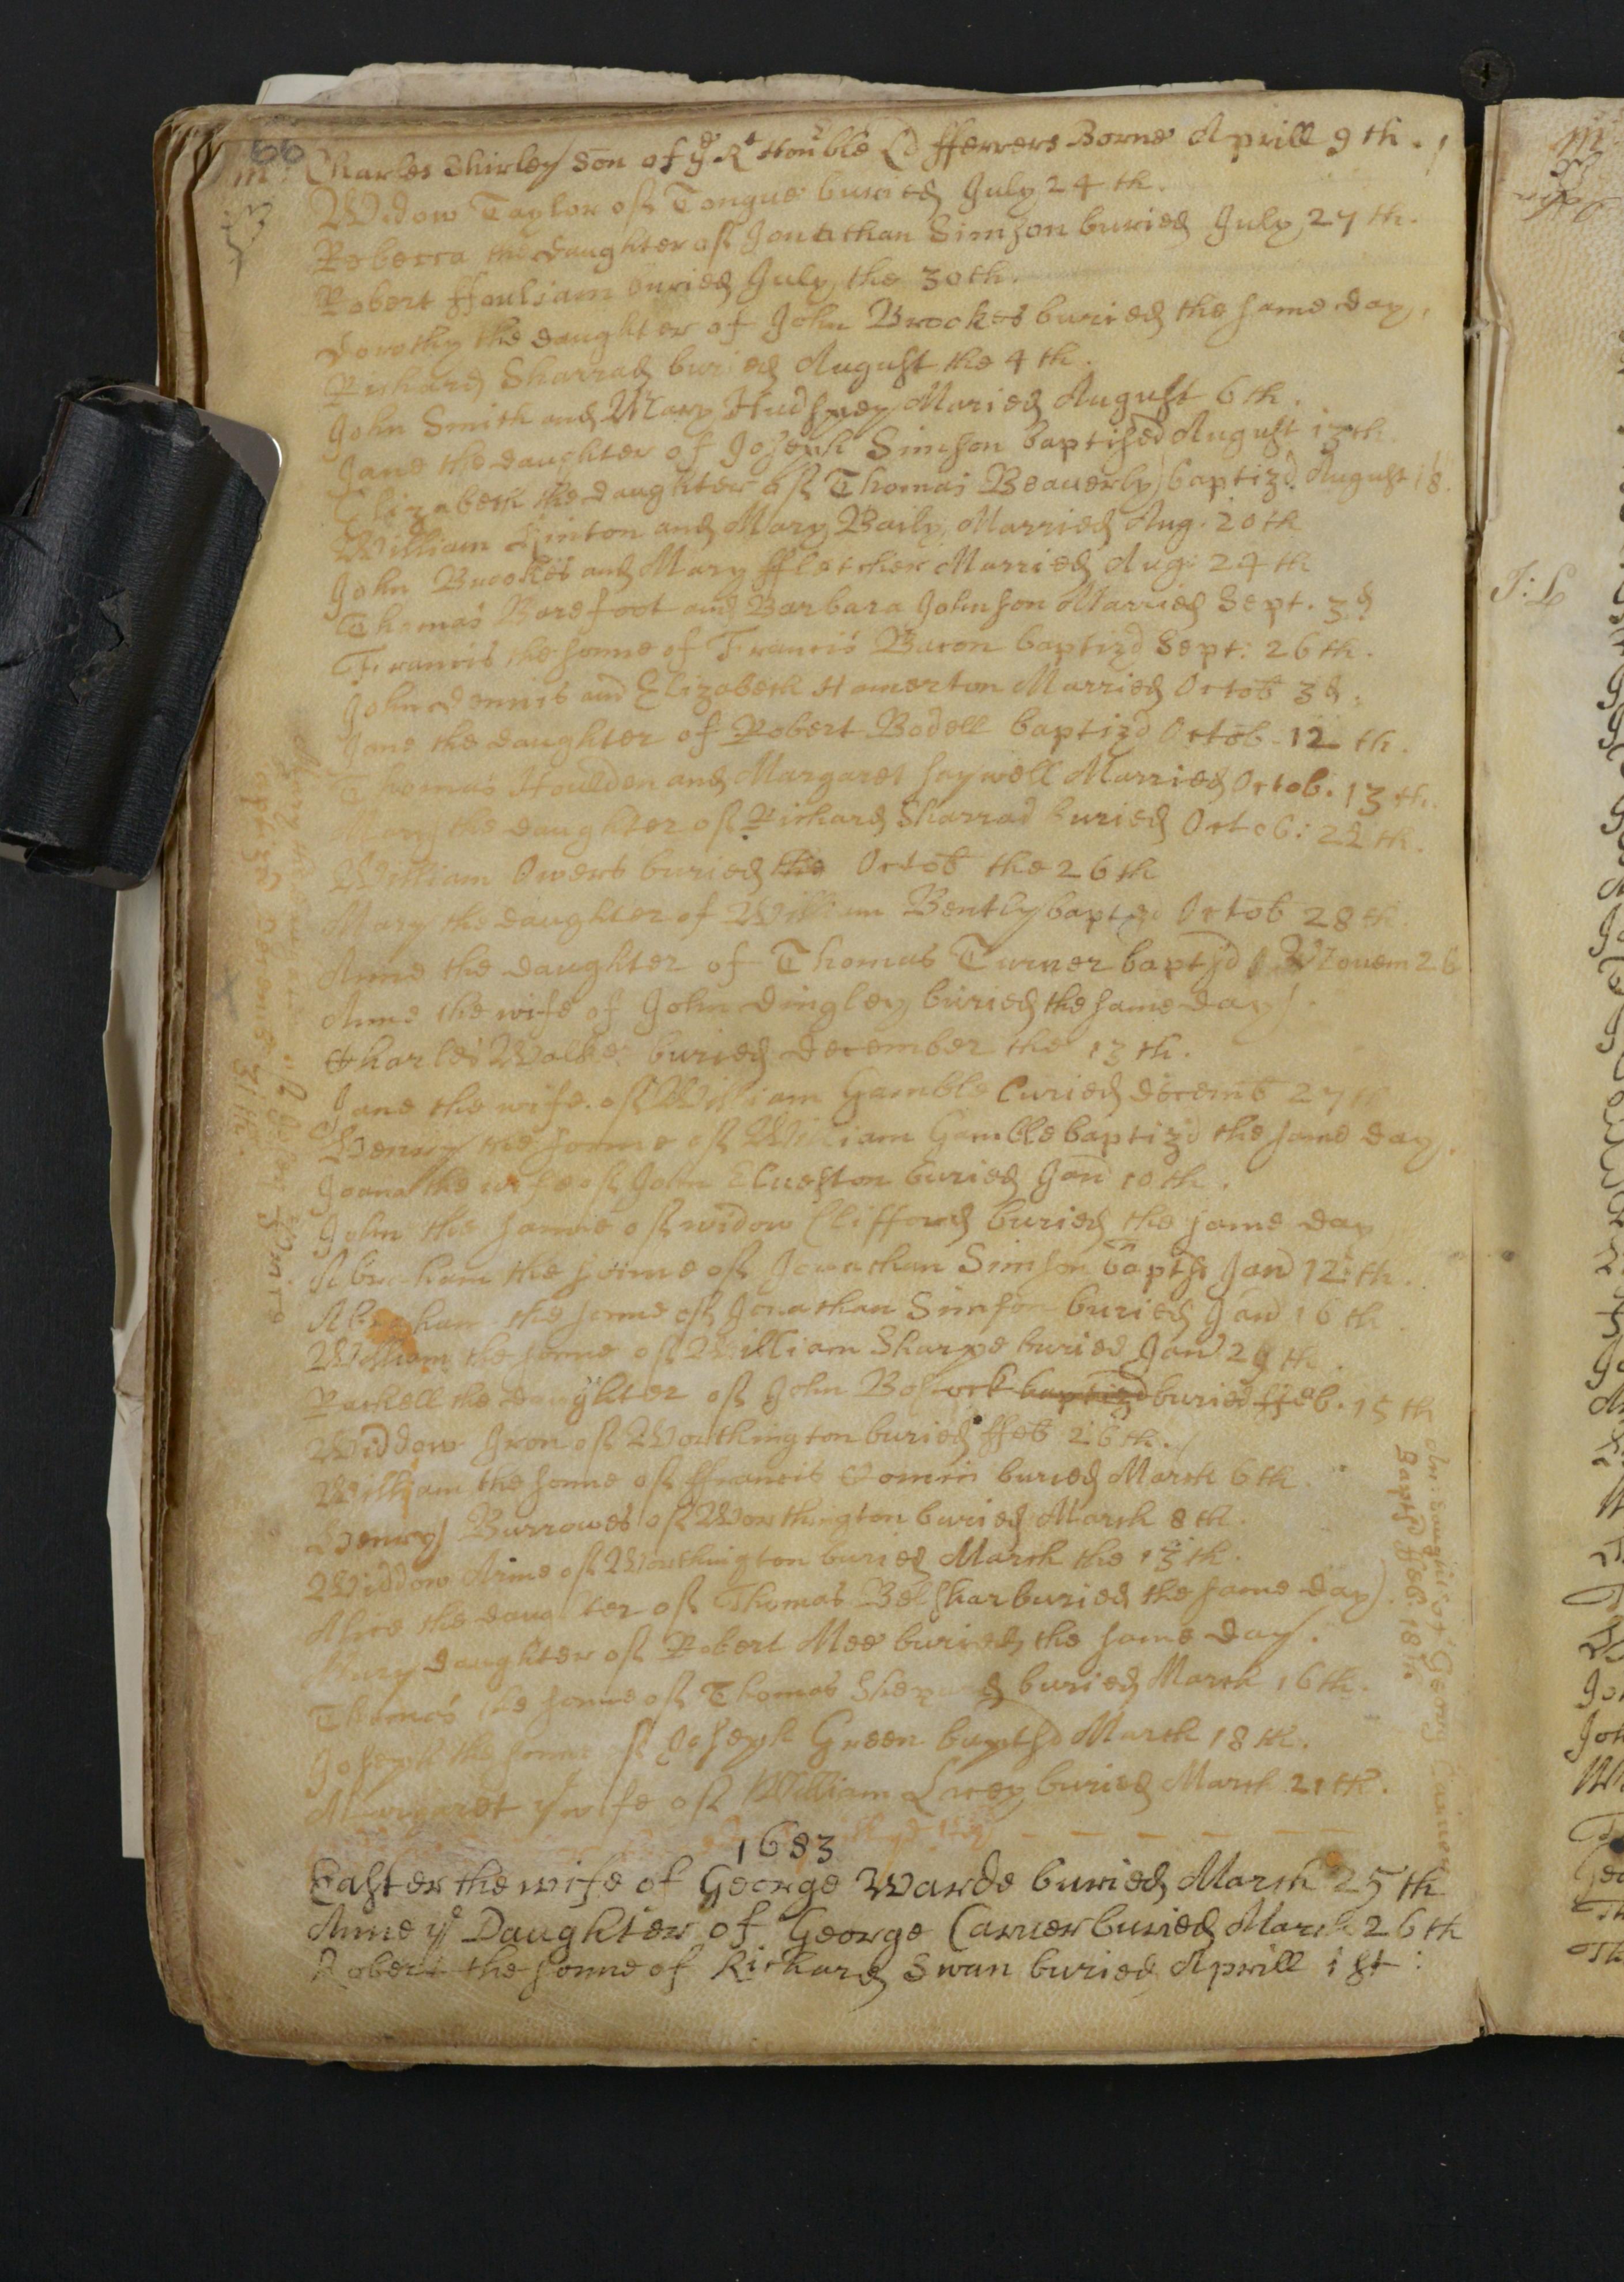 66
Charles Shirley Son of ye Rt Honble Ld fferrers Borne Aprill 9th.
Widow Taylor of Tongue buried July 24th.
Rebecca the daughter of Jonathan Simson buried July 27th.
Robert buried July the 30th.
Dorothy the daughter of John Brookes buried the same day.
Richard Sharrad buried August the 4th.
John Smith and Mary Maried August 6th.
Jane the daughter of Joseph Simson baptised August 13th
Elizabeth the daughter of Thomas Beauerly baptizd August 18.
William Kinton and Mary Baily Married Aug. 20th
John Brookes and Mary ffletcher Married Aug: 24th
Thomas Barefoot and Barbara Johnson Married Sept. 3d
Francis the sonne of Francis Bacon baptizd Sept: 26th.
John Dennis and Elizabeth Hamerton Married Octob 3d.
Jane the daughter of Robert Bodell baptizd Octob 12th.
Thomas Houlden and Margaret haywell Married Octob. 13th.
Mary the daughter of Richard Sharrad buried Octob: 22th.
William Owers buried the Octob the 26th
Mary the daughter of William Bently baptzd Octob 28th.
Anne the daughter of Thomas Turner baptjd Nouem 26
Anne the wife of John Dingley buried the same day.
Charles Walker buried December the 13th.
Jane the wife of William Gamble buried decemb 27th
Henry the sonne of William Gamble baptizd the same day.
Joana the wife of John Elueston buried Jan 10th.
John the sonne of widow Clifford buried the same day
Abraham the sonne of Jonathan Simson baptsd Jan 12th.
Abraham the sonne of Jonathan Simson buried Jan 16th
William the sonne of William Sharpe buried Jan 29th.
Rachell the daughter of John baptizd buried ffeb. 15th
Widdow of Worthington buried ffeb 26th.
William the sonne of ffrancis buried March 6th.
Henry Burrowes of Worthington buried March 8th.
Widdow of Worthington buried March the 13th.
Alice the daughter of Thomas Belshar buried the same day.
Mary daughter of Robert Mee buried the same day.
Thomas the sonne of Thomas Shepard buried March 16th.
Joseph the sonne of Joseph Green baptsd March 18th.
Margaret ye wife of William Lacey buried March 21th.
1683
Easter the wife of George Warde buried March 25th
Anne ye Daughter of George Carver buried March 26th
Robert the sonne of Richard Swan buried Aprill 1st:
Mary the daughter of
baptizd 31th.
daughter of Georg Carver
baptsd ffeb. 18th
J: L